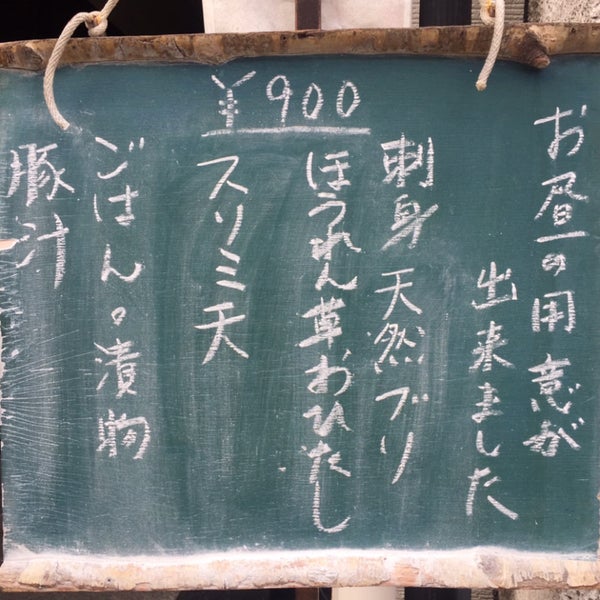 お昼の用意が
出来ました
刺身 天然ブリ
ほうれん草おひたし
¥900
スリミ天
ごはん。漬物
豚汁